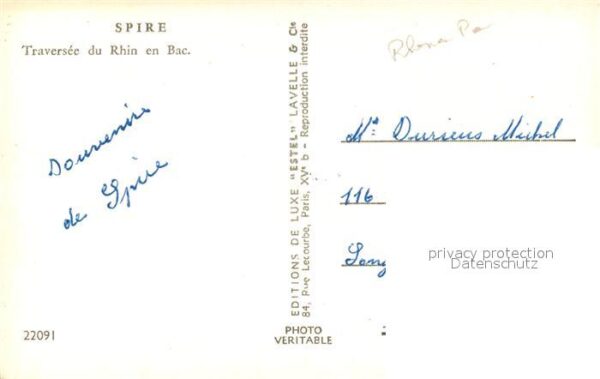 SPIRE
Traversée du Rhin en Bac.
Souvenire
de Spire
22091
EDITIONS DE LUXE "ESTEL" LAVELLE & Cie
84, Rue Lecourbe, Paris, XVe b - Reproduction interdite
PHOTO
VERITABLE
Md: Durieus Michel
116
privacy protection
Datenschutz